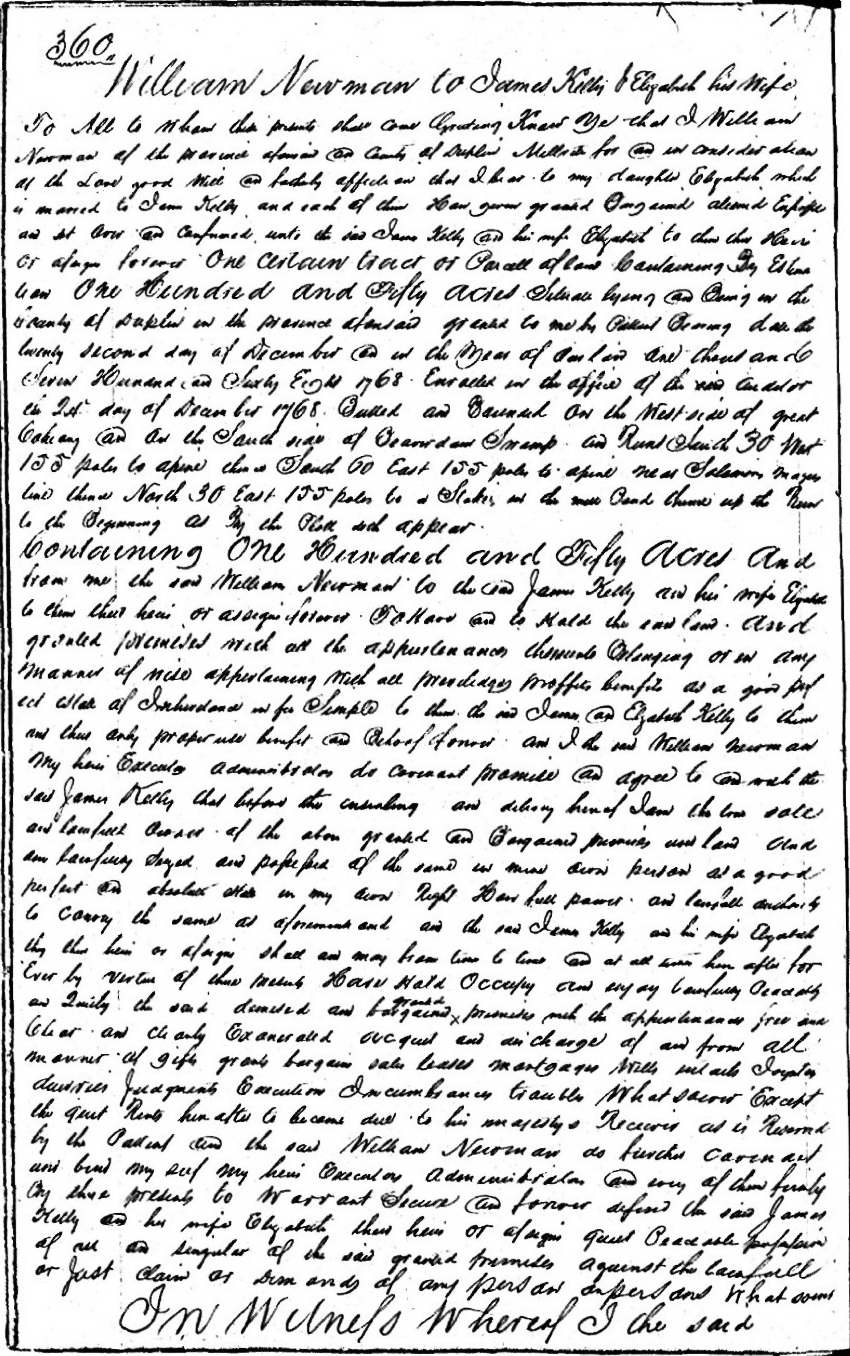 360.
William Newman to James Kelly & Elizabeth his Wife
To All to Whom these presents shall come Greeting Know Ye that I William
Newman of the province aforesaid and County of Duplin for and in consideration
of the Love good Will and affection that I bear to my daughter Elizabeth which
is married to James Kelly and each of them Have given granted Bargained aliened Enfeoffd
and set over and Confirmed unto the said James Kelly and his wife Elizabeth to them their Heirs
Or assigns forever One certain tract or Parcell of land Containing By Estima
tion One Hundred and Fifty Acres Situate lying and Being in the
County of Duplin in the province aforesaid granted to me by Patent Bearing date the
twenty second day of December and in the Year of our lord one thousand
Seven Hundred and Sixty Eight 1768. Enrolled in the office of the said Auditor
the day of December 1768. Butted and Bounded On the West side of great
Cohary and On the South side of Beaverdam Swamp and Runs South 30 West
155 poles to a pine thence South 60 East 155 poles to a pine near Solomons
line thence North 30 East 155 poles to a Stake in the mill Pond thence up the Run
to the Beginning as By the Platt doth appear.
Containing One Hundred and Fifty Acres And
from me the said William Newman to the said James Kelly and his wife Elizabeth
to them their heirs or assigns forever To Have and to Hold the said land And
granted premises with all the appurtenances thereunto Belonging or in any
manner of wise appertaining with all priviledges proffits benefits as a good perf
ect estate of Inheritance in fee Simple to them the said James and Elizabeth Kelly to them
and their only proper use benefit and Behoof forever and I the said William Newman
My heirs Executors administrators do covenant promise and agree to and with the
said James Kelly that before the ensealing and delivery hereof I am the true sole
and lawfull Owner of the above granted and Bargained premises and land And
am lawfully Seized and possessed of the same in mine own person as a good
perfect and absolute estate in my own Right Have full power and lawfull authority
to convey the same as aforementioned and the said James Kelly and his wife Elizabeth
they their heirs or assigns shall and may from time to time and at all times here after for
Ever by vertue of these presents Have Hold Occupy and enjoy lawfully Peaceably
and Quietly the said demised and bargained granted premises with the appurtenances free and
Clear and clearly Exonerated Acquitted and discharge of and from all
manner of gifts grants bargains sales leases mortgages Wills entails Joynters
dowries Judgments Executions Incumbrances troubles Whatsoever Except
the quit Rents here after to become due to his majestys Receiver as is Reserved
by the Patent and the said William Newman do further covenant
and bind my self My heirs Executors Administrators and every of them firmly
By these presents to Warrant Secure and forever defend the said James
Kelly and his wife Elizabeth their heirs or assigns quiet Peaceable possession
of all and singular of the said granted premises against the lawfull
or Just claim or Demands of any person or persons Whatsoever
In Witness Whereof I the said